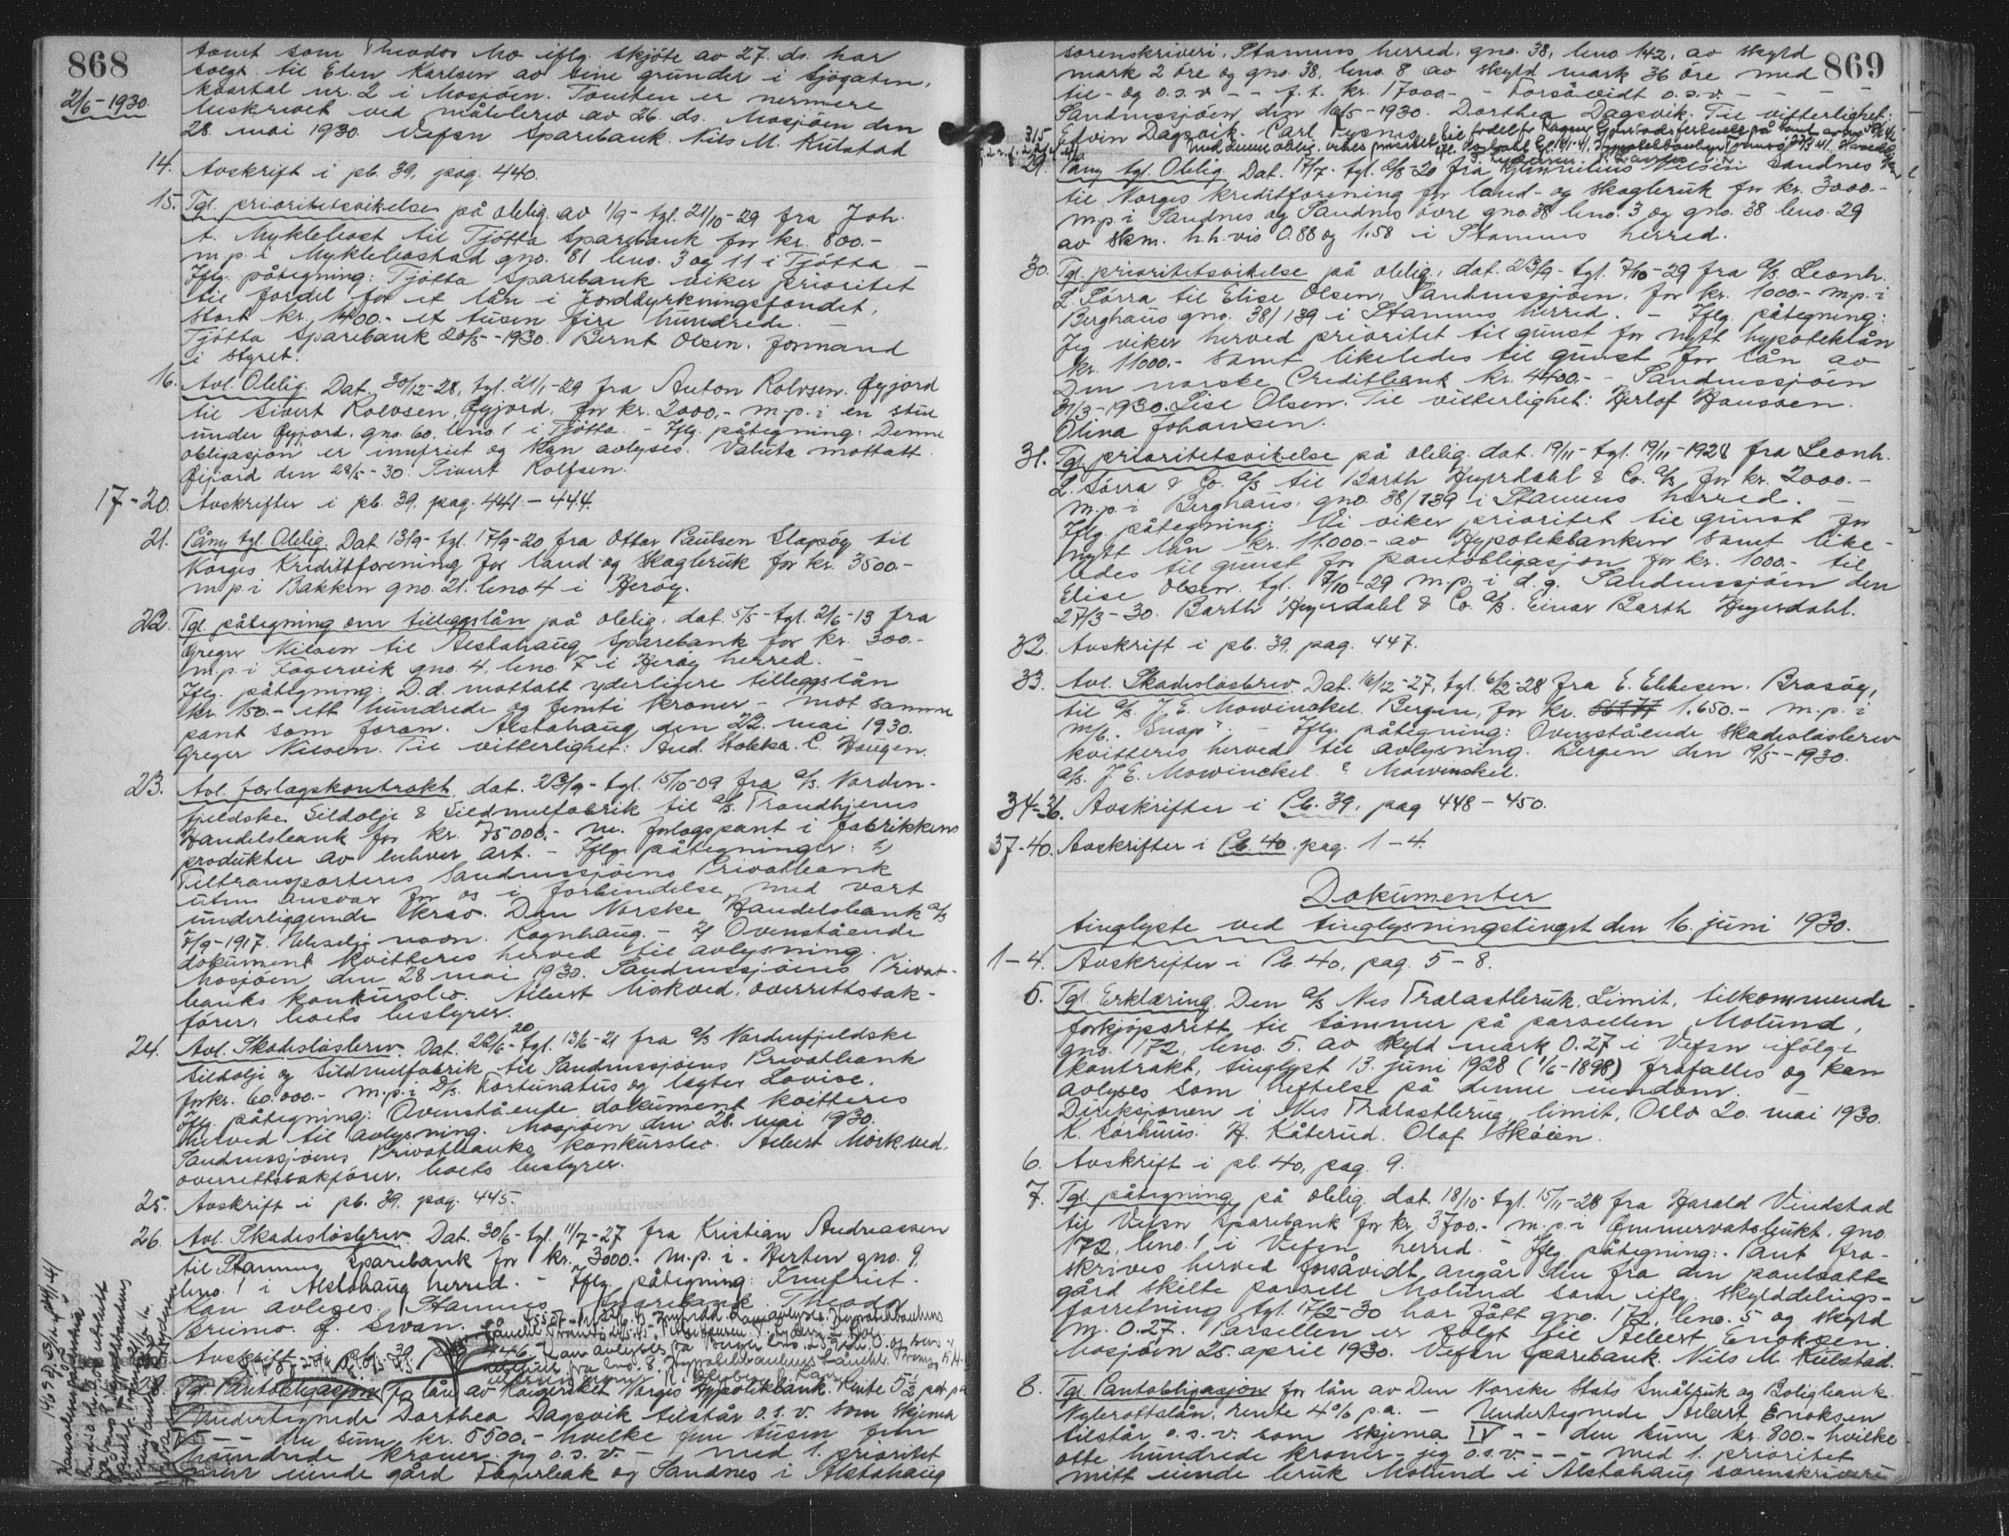 868
2/6-1930.
tomt som Theodor Mo iflg. skjöte av 27. ds. har
solgt til Elen Karlsen av sine grunder i Sjögaten,
kvartal nr. 2 i Mosjöen. Tomten er nermere
beskrevet ved målebrev av 26. ds. Mosjöen den
28. mai 1930. Vefsn Sparebank. Nils M. Kulstad
14. Avskrift i pb. 39, pag. 440.
15. Tgl. prioritetsvikelse på oblig. av 1/9 - tgl. 21/10-29 fra Joh.
A. Myklebost til Tjötta Sparebank for kr. 800.-
m.p. i Myklebostad gno. 81 bno. 3 og 11 i Tjötta -
Iflg. påtegning: Tjötta Sparebank viker prioritet
til fordel for et lån i Jorddyrkningsfondet,
stort kr. 1400.- et tusen fire hundrede. -
Tjötta Sparebank 20/5-1930. Bernt Olsen. formand
i styret.
16. Avl. Oblig. Dat. 30/12-28, tgl. 21/1-29 fra Anton Rolvsen. Öyjord
til Sivert Rolvsen, Öyjord, for kr. 2000.- m.p. i en stue
under Öyjord, gno. 60, bno. 1 i Tjötta. - Iflg. påtegning: Denne
obligasjon er innfriet og kan avlyses. Valuta mottatt.
Öijord den 28/5-30. Sivert Rolfsen.
17-20. Avskrifter i pb. 39. pag. 441 - 444.
21. Påny tgl. Oblig. Dat. 13/9- tgl. 17/9-20 fra Ottar Paulsen Slapsöy til
Norges Kreditforening for land- og skogbruk for kr. 3500.-
m.p. i Bakken gno. 21. bno. 4 i Heröy.
22. Tgl. påtegning om tilleggslån på oblig. dat. 5/5- tgl. 2/6-13 fra
Greger Nilsen til Alstahaug Sparebank for kr. 300.-
m.p. i Fagervik gno. 4, bno. 7 i Heröy herred. -
Iflg. påtegning: D.d. mottatt yderligere tilleggslån
kr. 150.- ett hundrede og femti kroner - mot samme
pant som foran. Alstahaug den 22. mai 1930.
Greger Nilsen. Til vitterlighet: And. Stokka. C. Haugen.
23. Avl. forlagskontrakt, dat. 23/9- tgl. 15/10-09 fra a/s Norden-
fjeldske Sildolje & Sildmelfabrik til a/s Trondhjems
Handelsbank for kr. 75000.- m. forlagspant i fabrikkens
produkter av enhver art. - Iflg. påtegninger: 1)
Tiltransporteres Sandnessjöens Privatbank
uten ansvar for os i forbindelse med vort
underliggende krav. Den Norske Handelsbank a/s
7/9-1917. Rognhaug. - 2) Ovenstående
dokument kvitteres herved til avlysning.
Mosjöen den 28 mai 1930. Sandnessjöens Privat-
banks konkursbo. Albert Mörkved, overrettssak-
förer, boets bestyrer.
24. Avl. Skadeslösbrev. Dat. 22/6-20 tgl. 13/6-21 fra a/s Nordenfjeldske
Sildolje og Sildmelfabrik til Sandnessjöens Privatbank
for kr. 60.000.- m.p. i D/s. Fortunatus og legter Lovise.
Iflg. påtegning: Ovenstående dokument kvitteres
herved til avlysning. Mosjöen den 28. mai 1930.
Sandnessjöens Privatbanks konkursbo. Albert Mörkved.
overrettssakförer, boets bestyrer.
25. Avskrift i pb. 39. pag. 445.
26. Avl. Skadeslösbrev. Dat. 30/6- tgl. 11/7-27 fra Kristian Andreassen
til Stamnes Sparebank for kr. 3000.- m.p. i Herten gno. 9.
bno. 1 i Alstahaug herred. - Iflg. påtegning: Innfriet.
Kan avleses. Stamnes Sparebank Theodor
Breimo. J. Svan.
Avskrift i pb. 39 pag. 446.
28. Tgl. Pantobligasjon for lån av Kongeriket Norges Hypotekbank. Rente 5 1/2 pct. p.a.
Undertegnede Dorthea Dagsvik tilstår o.s.v. som skjema
- - den sum kr. 5500.- hvilke fem tusen fem
hundrede kroner jeg o.s.v. - med 1. prioritet
eiende gård Fagerbak og Sandnes i Alstahaug
869
sorenskriveri, Stamnes herred, gno. 38, bno. 142, av skyld
mark 2 öre og gno. 38, bno. 8 av skyld mark 36 öre med
til- og o.s.v. - - f.t. kr. 17000.- - Forsåvidt o.s.v. - - -
Sandnessjöen den 16/5-1930. Dorthea Dagsvik. Til vitterlighet:
Edvin Dagsvik. Carl
29. Påny tgl. Oblig. Dat. 17/7- tgl. 2/8-20 fra Cornelius Nilsen Sandnes
til Norges kreditforening for land- og skogbruk for kr. 3000.-
m.p. i Sandnes og Sandnes övre gno. 38 bno. 3 og gno. 38 bno. 29
av skm. h.h.vis 0.88 og 1.58 i Stamnes herred.
30. Tgl. prioritetsvikelse på oblig. dat. 23/9- tgl. 7/10-29 fra a/s Leonh.
L. Sörra til Elise Olsen, Sandnessjöen, for kr. 1000.- m.p. i
Berghaus gno. 38/139 i Stamnes herred. - Iflg. påtegning:
Jeg viker herved prioritet til gunst for nytt hypoteklån
kr. 11000.- samt likeledes til gunst for lån av
Den norske Creditbank kr. 4400.- - Sandnessjöen
31/3-1930. Lise Olsen. Til vitterlighet: Herlof Hanssen.
Olina Johansen.
31. Tgl. prioritetsvikelse på oblig. dat. 19/11- tgl. 19/11-1928 fra Leonh.
L. Sörra & Co. a/s til Barth Heyerdahl & Co. a/s for kr. 2000.-
m.p. i Berghaus, gno. 38/139 i Stamnes herred. -
Iflg. påtegning: Vi viker prioritet til gunst for
nytt lån kr. 11.000.- av Hypotekbanken samt like-
ledes til gunst for pantobligasjon for kr. 1000.- til
Elise Olsen, tgl. 7/10-29 m.p. i d.g. Sandnessjöen den
27/3-30. Barth Heyerdahl & Co. a/s. Einar Barth Heyerdahl.
32. Avskrift i pb. 39. pag. 447.
33. Avl. Skadeslösbrev. Dat. 16/12-27, tgl. 6/2-28 fra E. Ebbesen. Brasöy,
til a/s J. E. Mowinckel. Bergen, for kr. 1.650.- m.p. i
m/b. "Snap". - Iflg. påtegning: Ovenstående skadeslösbrev
kvitteres herved til avlysning. Bergen den 19/5-1930.
a/s. J. E. Mowinckel. Mowinckel.
34-36. Avskrifter i Pb. 39, pag 448-450.
37-40. Avskrifter i Pb. 40 pag. 1-4.
Dokumenter
tinglyste ved tinglysningstinget den 16. juni 1930.
1-4. Avskrifter i Pb. 40, pag. 5-8.
5. Tgl. Erklæring. Den a/s Nes Trælastbruk. Limit. tilkommende
forkjöpsrett til tömmer på parsellen Molund,
gno. 172, bno. 5 av skyld mark 0.27 i Vefsn ifölge
kontrakt, tinglyst 13. juni 1928 (1/6-1898) frafalles og kan
avlyses som heftelse på denne eiendom.
Direksjonen i Nes Trælastbrug limit, Oslo 20. mai 1930.
K. Sörhuus. H. Kåterud. Olaf Skōien.
6. Avskrift i pb. 40, pag. 9.
7. Tgl. påtegning på oblig. dat. 18/10- tgl. 15/11-28 fra Harald Vindstad
til Vefsn Sparebank for kr. 3700.- m.p. i Ömmervatsbukt, gno.
172, bno. 1 i Vefsn herred. - Iflg. påtegning: Pant fra-
skrives herved forsåvidt angår den fra den pantsatte
gård skilte parsell Molund som iflg. skylddelings-
forretning tgl. 17/2-30 har fått gno. 172, bno. 5 og skyld
m. 0.27. Parsellen er solgt til Albert Enoksen.
Mosjöen 25. april 1930. Vefsn Sparebank. Nils M. Kulstad.
8. Tgl. Pantobligasjon for lån av Den Norske Stats Småbruk og Boligbank.
Nybrottslån, rente 4% p.a. - Undertegnede Albert Enoksen
tilstår o.s.v. som skjema IV - - den sum kr. 800.- hvilke
otte hundrede kroner jeg o.s.v. - - - med 1. prioritet
mitt eiende bruk Molund i Alstahaug sorenskriveri